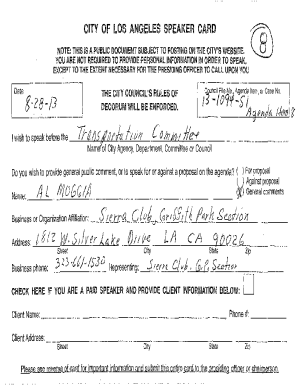 CITY OF LOS ANGELES SPEAKER CARD
8
NOTE: THIS IS A PUBLIC DOCUMENT SUBJECT TO POSTING ON THE CITY'S WEBSITE.
YOU ARE NOT REQUIRED TO PROVIDE PERSONAL INFORMATION IN ORDER TO SPEAK,
EXCEPT TO THE EXTENT NECESSARY FOR THE PRESIDING OFFICER TO CALL UPON YOU
Date
8-28-13
THE CITY COUNCIL'S RULES OF
DECORUM WILL BE ENFORCED.
Council File No., Agenda Item, or Case No.
13-1094-S1
Agenda Item 8
I wish to speak before the Transportation Committee
Name of City Agency, Department, Committee or Council
Do you wish to provide general public comment, or to speak for or against a proposal on the agenda? ( ) For proposal
( ) Against proposal
Name: AL MOGGIA
General comments
Business or Organization Affiliation: Sierra Club, Griffith Park Section
Address: 1812 W. Silver Lake Drive LA CA 90026
Street City State Zip
Business phone: 323-661-1530 Representing: Sierra Club, G.P. Section
CHECK HERE IF YOU ARE A PAID SPEAKER AND PROVIDE CLIENT INFORMATION BELOW:
Client Name: Phone #:
Client Address:
Street City State Zip
Please see reverse of card for important information and submit this entire card to the presiding officer or chairperson.